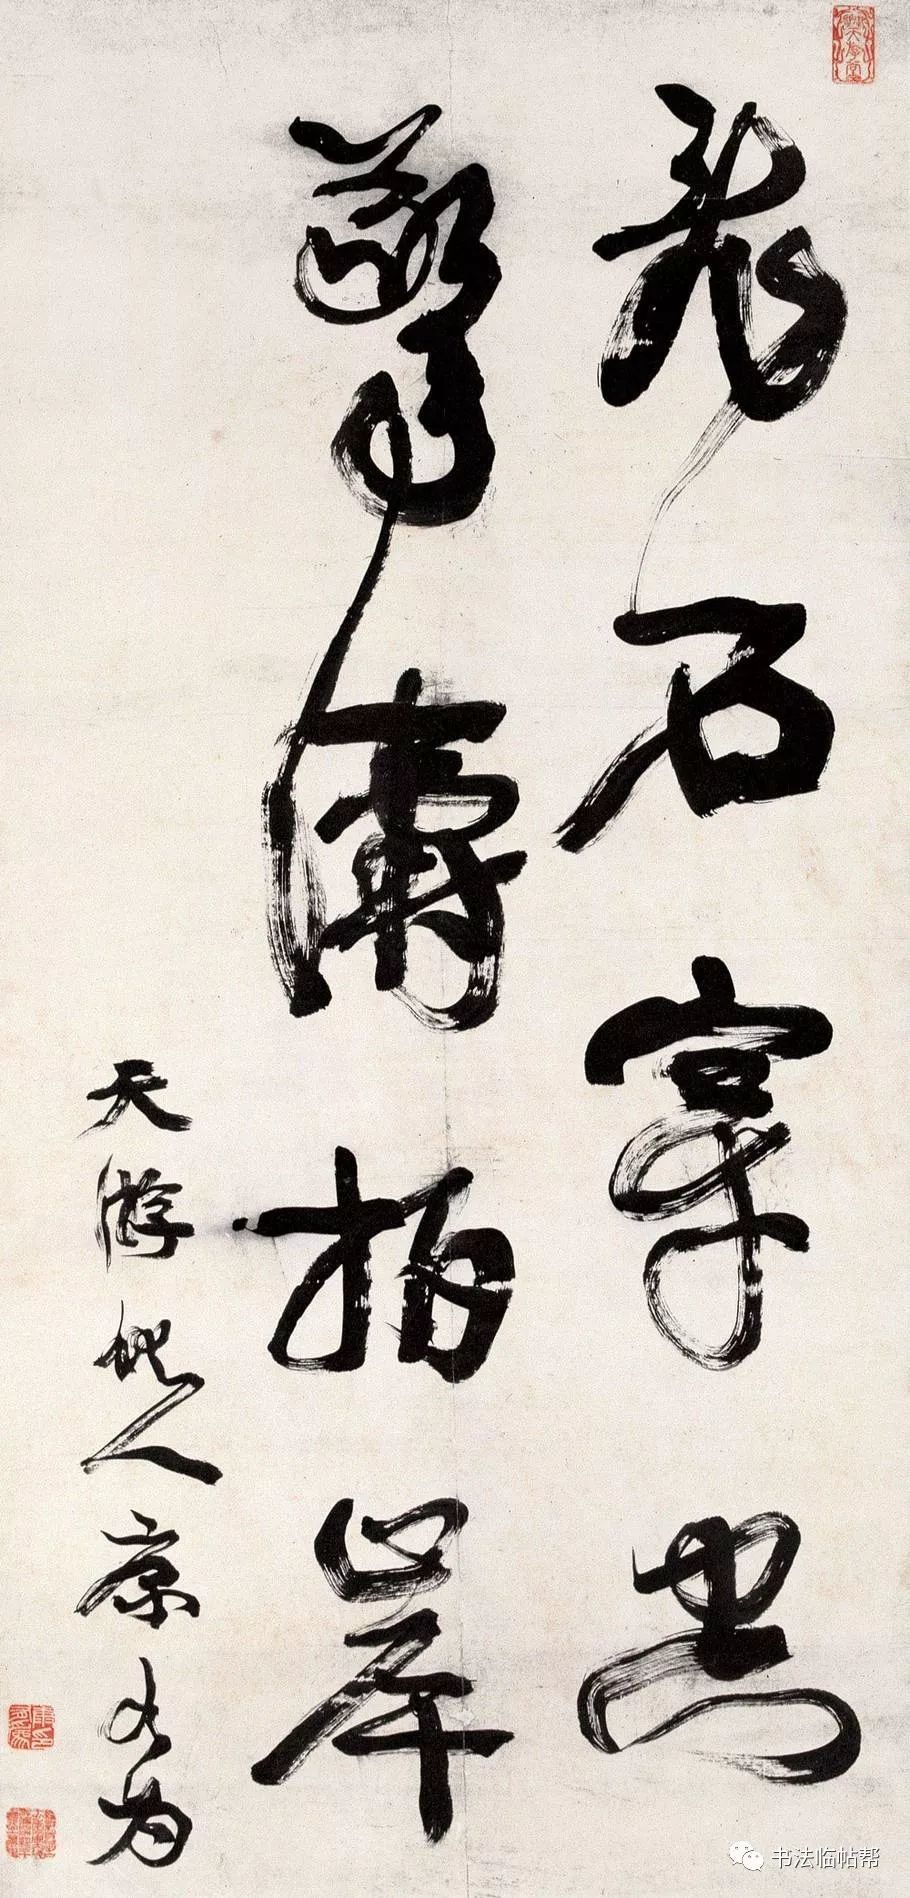 亂石穿空
驚濤拍岸
天游化人康有为
书法临帖帮